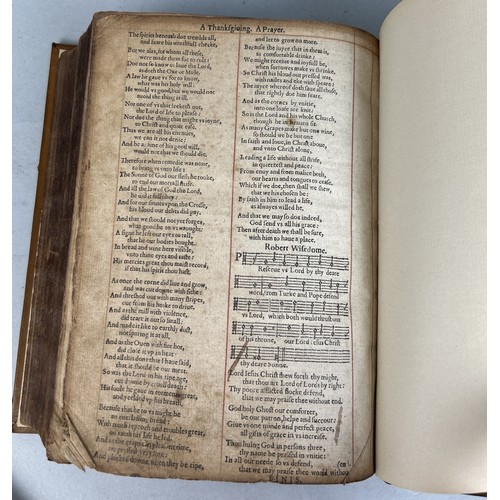 A Thanksgiving. A Prayer.
The spirits beneath doe tremble all,
and feare his wrathfull checke,
But we alas, for whom all these,
were made them for to rule:
Doe not so know or loue the Lord,
as doth the Oxe or Mule.
A law he gaue vs for to know,
what was his holy will:
He would vs good, but we would not
auoid the thing is ill.
Not one of vs that seeketh out,
the Lord of life to please:
Nor doe the thing that might vs ioyne,
to Christ and quiet ease.
Thus we are all his enemies,
we can it not denie:
And he againe of his good will,
would not that we should die.
Therefore when remedie was none,
to bring vs vnto life:
The Sonne of God our flesh he tooke,
to end our mortall strife.
And all the law of God the Lord,
he did it full obey:
And for our sinnes vpon the Crosse,
his bloud our debts did pay.
And that we should not yet forget,
what good he to vs wrought:
A signe he left our eyes to tell,
that he our bodies bought.
In bread and wine here visible,
vnto thine eyes and taste:
His mercies great thou maist record,
if that his spirit thou hast.
As once the corne did liue and grow,
and was cut downe with sithe:
And threshed out with many stripes,
out from his huske to driue.
And as the mill with violence,
did teare it out so small:
And made it like to earthly dust,
not sparing it at all.
And as the Ouen with fire hot,
did close it vp in heat:
And all this done that I haue said,
that it should be our meat.
So was the Lord in his ripe age,
cut downe by cruell death:
His soule he gaue in torments great,
and yeelded vp his breath.
Because that he to vs might be
an euerlasting bread:
With much reproch and troubles great,
on earth his life he led.
And as the grapes in pleasant time,
are pressed very sore:
And plucked downe when they be ripe,
and let to grow no more.
Because the iuyce that in them is,
as comfortable drinke:
We might receiue and ioyfull be,
when sorrowes make vs shrinke.
So Christ his bloud out pressed was,
with nailes and eke with speare:
The iuyce whereof doth saue all those,
that rightly doe him feare.
And as the cornes by vnitie,
into one loafe are knit:
So is the Lord and his whole Church,
though he in heauen sit.
As many Grapes make but one wine,
so should we be but one
In faith and loue, in Christ aboue,
and vnto Christ alone.
Leading a life without all strife,
in quiet rest and peace:
From enuy and from malice both,
our hearts and tongues to cease.
Which if we doe, then shall we shew,
that we his chosen be:
By faith in him to lead a life,
as alwayes willed he.
And that we may so doe indeed,
God send vs all his grace:
Then after death we shall be sure,
with him to haue a place.
Robert Wisedome.
PReserue vs Lord by thy deare
word, from Turke and Pope defend
vs Lord, which both would thrust out
of his throne, our Lord Iesus Christ
thy deare Sonne.
Lord Iesus Christ shew forth thy might,
that thou art Lord of Lords by right:
Thy poore afflicted flocke defend,
that we may praise thee without end.
God holy Ghost our comforter,
be our patron, helpe and succour:
Giue vs one minde and perfect peace,
all gifts of grace in vs increase.
Thou liuing God in persons three,
thy name be praised in vnitie:
In all our neede so vs defend, (end
that we may praise thee world without
FINIS.